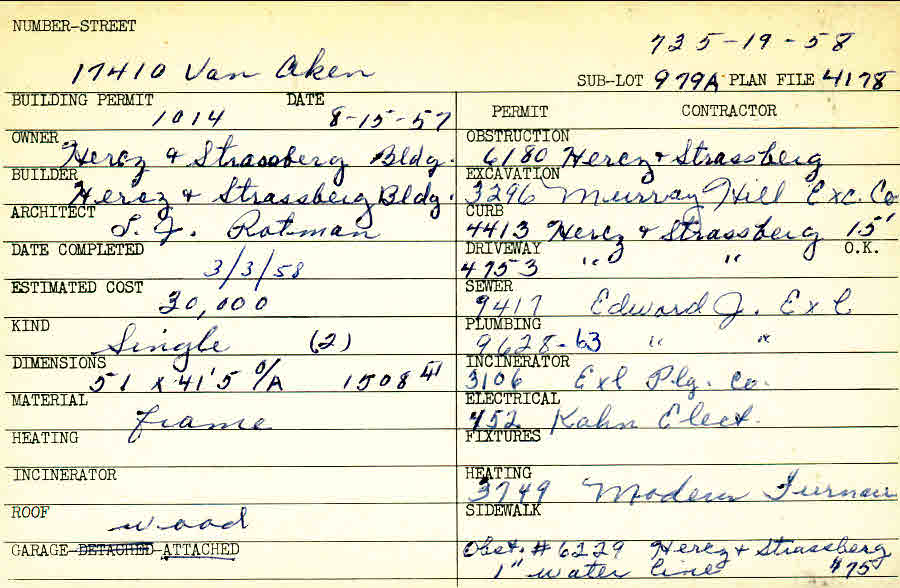 NUMBER-STREET
735-19-58
17410 Van Aken
SUB-LOT 979A PLAN FILE 4178
BUILDING PERMIT DATE
1014 8-15-57
OWNER
Hercz & Strassberg Bldg.
BUILDER
Hercz & Strassberg Bldg.
ARCHITECT
Rotman
DATE COMPLETED
3/3/58
ESTIMATED COST
30,000
KIND
Single (2)
DIMENSIONS
51 x 41'5 O/A 1508
MATERIAL
frame
HEATING
INCINERATOR
ROOF
wood
GARAGE-DETACHED-ATTACHED
PERMIT CONTRACTOR
OBSTRUCTION
6180 Hercz & Strassberg
EXCAVATION
3296 Murray Hill Exc. Co
CURB
4413 Hercz & Strassberg 15'
DRIVEWAY O.K.
4753 " "
SEWER
9417 Edward J. Exl
PLUMBING
9628-63 " "
INCINERATOR
3106 Exl Plg. Co.
ELECTRICAL
452 Kahn Elect.
FIXTURES
HEATING
3749 Modern Furnace
SIDEWALK
Obst. #6229 Hercz & Strassberg
1" water line #75